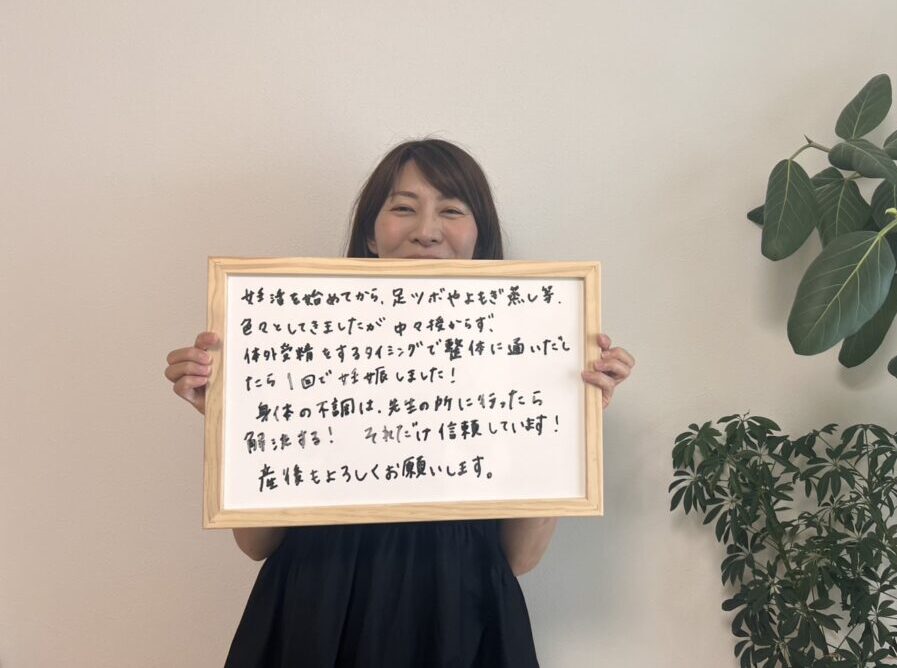 妊活を始めてから、足ツボやよもぎ蒸し等、
色々としてきましたが中々授からず、
体外受精をするタイミングで整体に通いだし
たら1回で妊娠しました!
身体の不調は、先生の所に行ったら
解決する! それだけ信頼しています!
産後もよろしくお願いします。